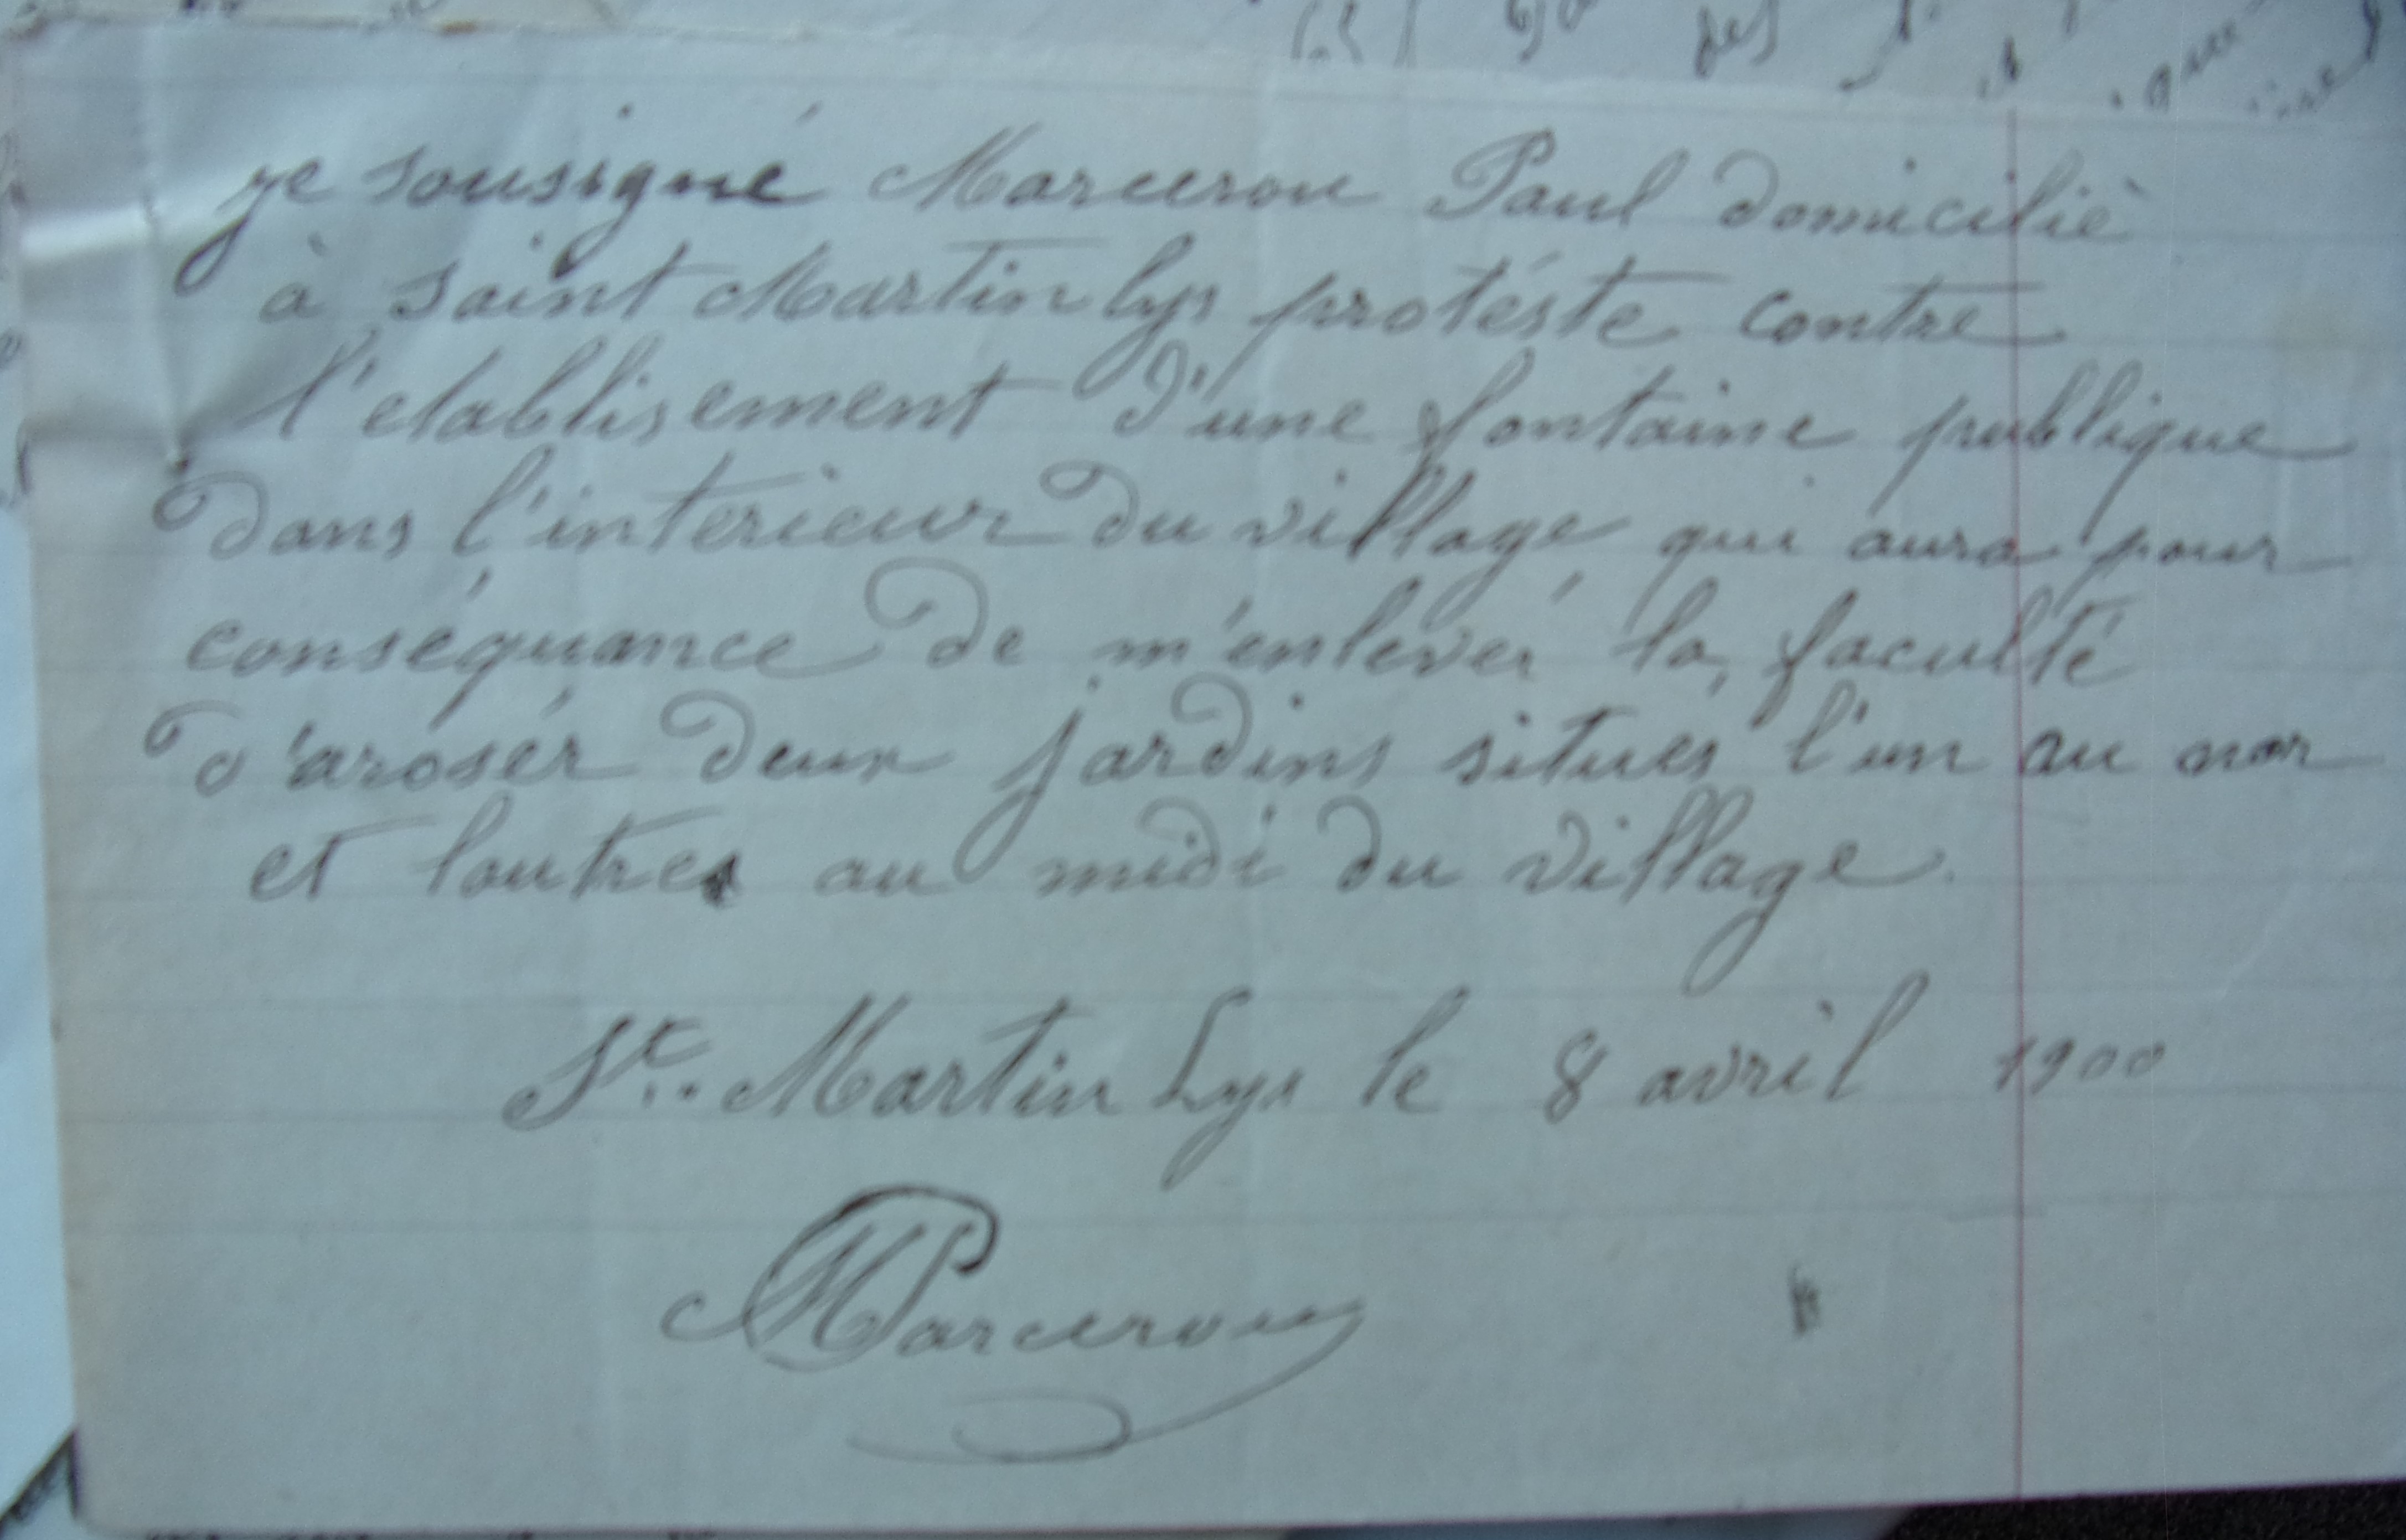 je sousigné Marcerou Paul domiciliè
à saint Martin lys protéste contre
l'etablisement d'une fontaine publique
dans l'interieur du village qui aura pour
conséquance de m'enlever la faculté
d'arosér deux jardins situés l'un au nor
et lautre au midi du village.
St. Martin Lys le 8 avril 1900
Marcerou
des